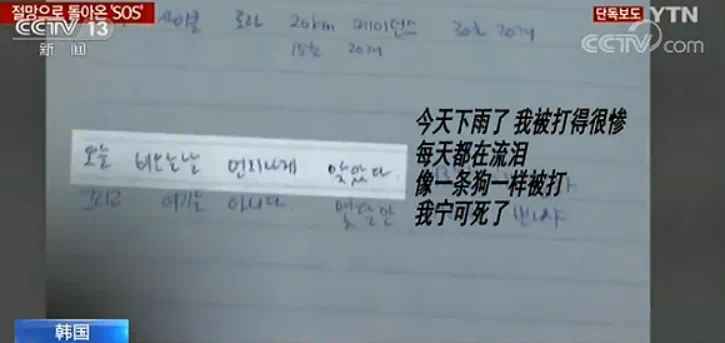 절망으로 돌아온 'SOS'
단독보도 YTN
CCTV 13
新闻
CCTV com
사이클 로라 20km 케이던스
15초 20개
오늘 비오는날 먼지나게 맞았다.
그리고 여기는 아니다
今天下雨了 我被打得很惨
每天都在流泪
像一条狗一样被打
我宁可死了
韩国